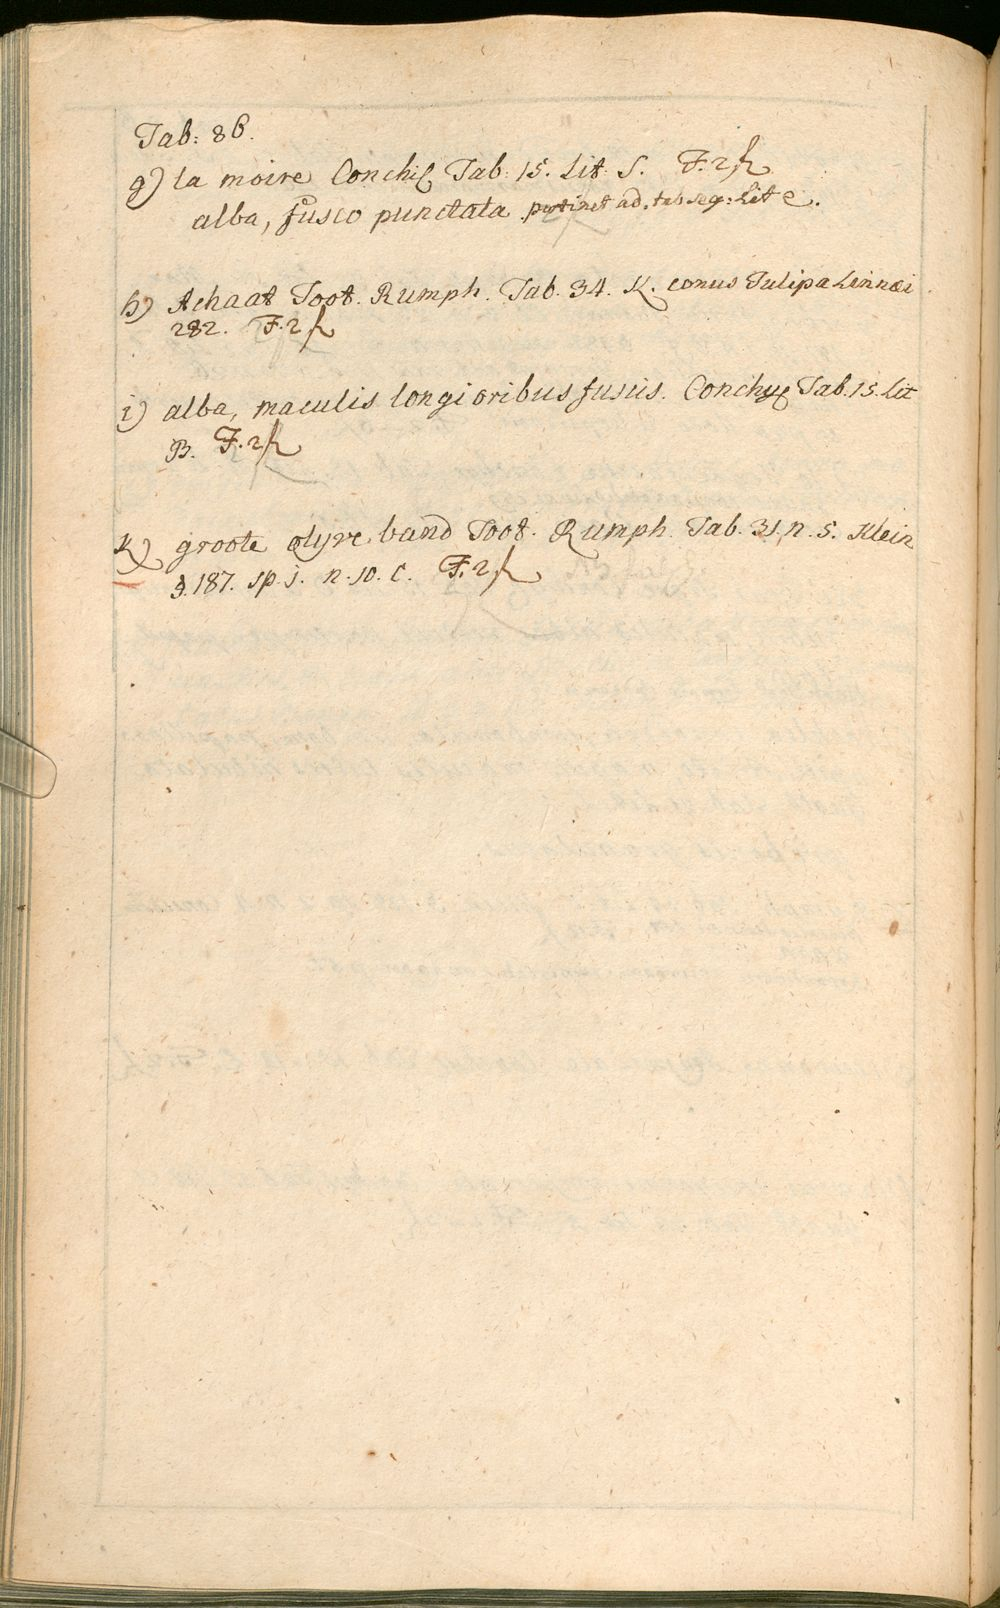 Tab: 86.
g) la moire Conchyl Tab. 15. Lit. S. F. 2 f
alba, fusco punctata pertinet ad. tab seq: Lit e.
h) Achaat Toot. Rumph. Tab. 34. K. conus Tulipa Linnæi
282. F. 2 f
i) alba, maculis longioribus fusiis. Conchyl Tab. 15. Lit
B. F. 2 f
k) groote olyve band Toot. Rumph. Tab. 31. n. 5. Klein
§. 187. sp. 1. n. 10. C. F. 2 f